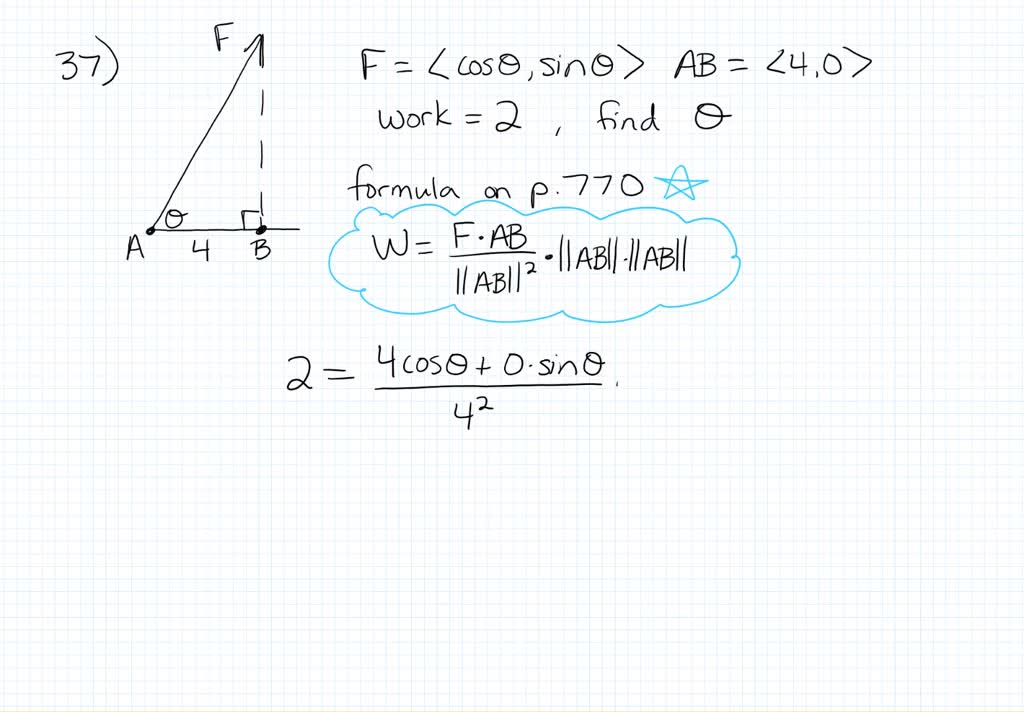 37)
F
θ
A 4 B
F = <cosθ, sinθ> AB = <4,0>
work = 2 , find θ
formula on p.770 ☆
W = F·AB / ||AB||² · ||AB|| · ||AB||
2 = 4cosθ + 0·sinθ / 4² .